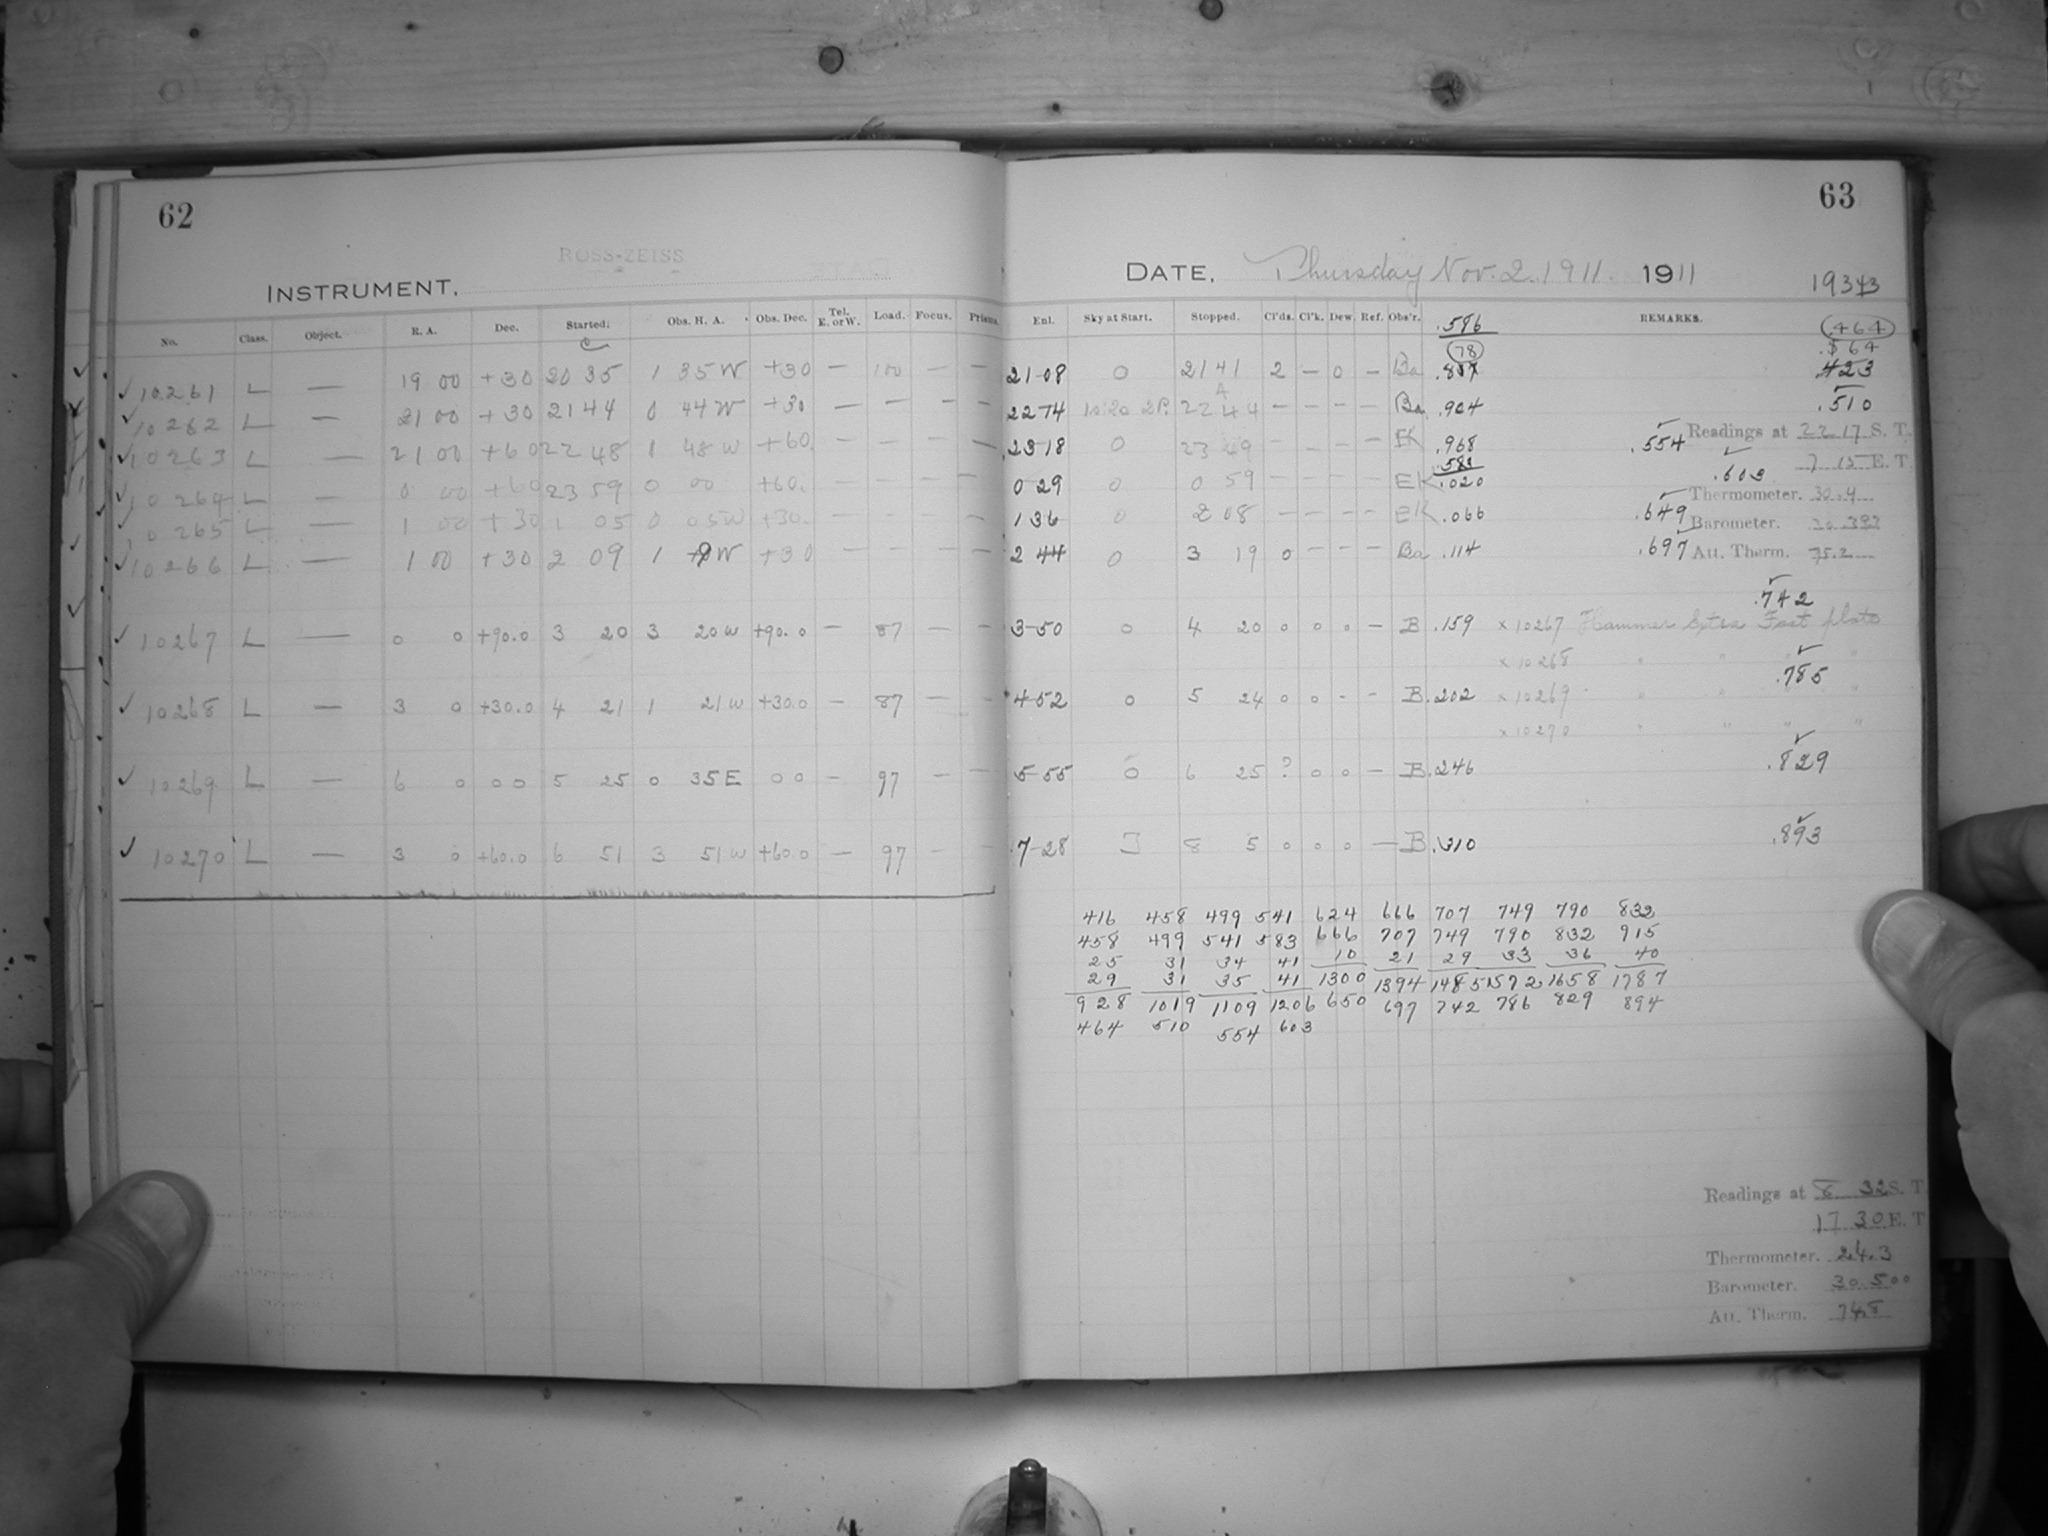 62
ROSS-ZEISS
INSTRUMENT.
No. Class. Object. R. A. Dec. Started. Obs. H. A. Obs. Dec. Tel. E. or W. Load. Focus. Prisms.
10261 L — 19 00 +30 20 35 1 35 W +30 — 100 — —
10262 L — 21 00 +30 21 44 0 44 W +30 — — — —
10263 L — 21 00 +60 22 48 1 48 W +60 — — — —
10264 L — 0 00 +60 23 59 0 00 +60. — — — —
10265 L — 1 00 +30 1 05 0 05 W +30. — — — —
10266 L — 1 00 +30 2 09 1 9 W +30 — — — —
10267 L — 0 0 +90.0 3 20 3 20 W +90.0 — 87 — —
10268 L — 3 0 +30.0 4 21 1 21 W +30.0 — 87 — —
10269 L — 6 0 0 0 5 25 0 35 E 0 0 — 97 — —
10270 L — 3 0 +60.0 6 51 3 51 W +60.0 — 97 — —
63
DATE, Thursday Nov. 2. 1911. 1911
19343
Enl. Sky at Start. Stopped. Cl'ds. Cl'k. Dew. Ref. Obs'r. .586 REMARKS. .464
78 .864
21-08 0 21 41 2 — 0 — Ba 423
22 74 22 44 — — — — Ba .904 .510
23 18 0 23 49 — — — — EK .968 .554 Readings at 22 17 S. T.
.581 .603 7 15 E. T.
0 29 0 0 59 — — — — EK .020 Thermometer. 30.4
1 36 0 2 08 — — — — EK .066 .649 Barometer.
2 44 0 3 19 0 — — — Ba .114 .697 Att. Therm. 75.2
.742
3-50 0 4 20 0 0 0 — B .159 x 10267 Hammer Extra Fast plate
x 10268 " " " "
.785
4-52 0 5 24 0 0 - - B .202 x 10269 " " " "
x 10270 " " " "
5-55 0 6 25 ? 0 0 — B .246 .829
7-28 8 5 0 0 0 — B .310 .893
416 458 499 541 624 666 707 749 790 832
458 499 541 583 666 707 749 790 832 915
25 31 34 41 10 21 29 33 36 40
29 31 35 41 1300 1394 1485 1572 1658 1787
928 1019 1109 1206 650 697 742 786 829 894
464 510 554 603
Readings at 8 32 S. T.
17 30 E. T.
Thermometer. 24.3
Barometer. 30.500
Att. Therm. 74.8